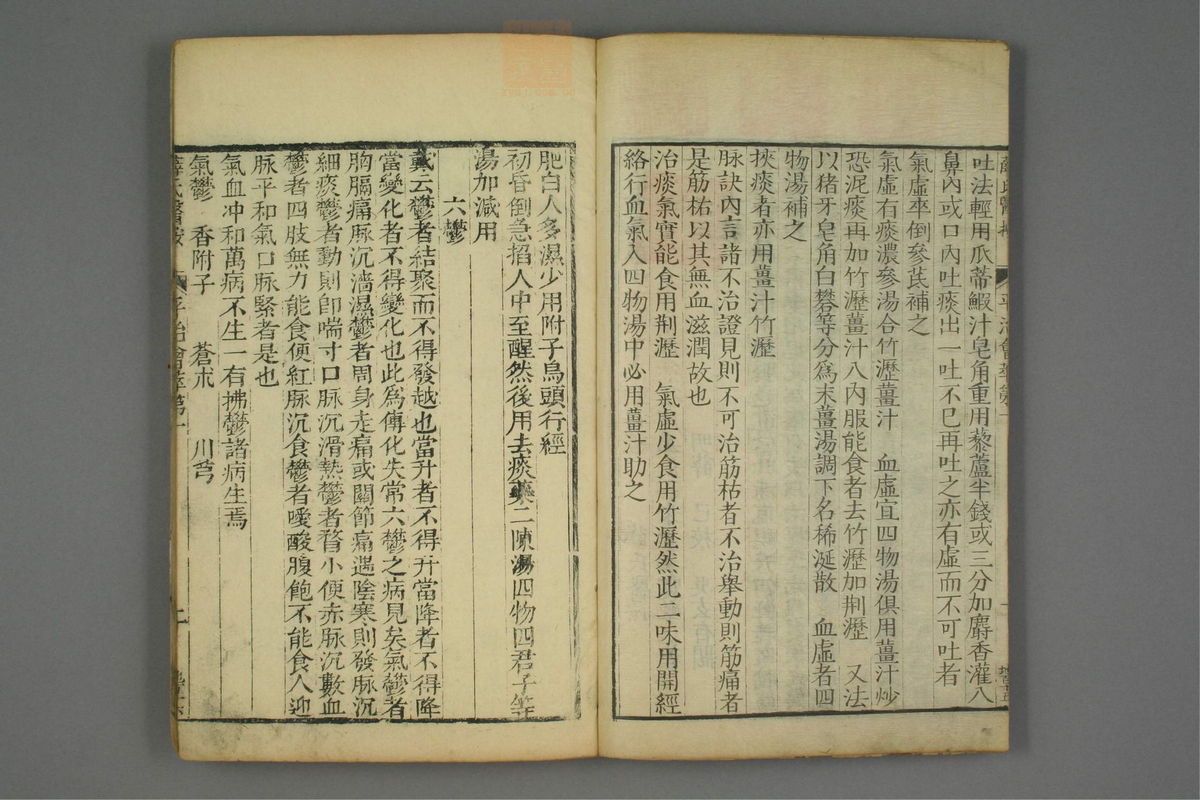 吐法輕用瓜蒂蝦汁皂角重用藜蘆半錢或三分加麝香灌入
鼻內或口內吐痰出一吐不已再吐之亦有虛而不可吐者
氣虛卒倒參芪補之
氣虛有痰濃參湯合竹瀝薑汁　血虛宜四物湯俱用薑汁炒
恐泥痰再加竹瀝薑汁入內服能食者去竹瀝加荆瀝　又法
以猪牙皂角白礬等分爲末薑湯調下名稀涎散　血虛者四
物湯補之
挾痰者亦用薑汁竹瀝
脉訣內言諸不治證見則不可治筋枯者不治舉動則筋痛者
是筋枯以其無血滋潤故也
治痰氣實能食用荆瀝　氣虛少食用竹瀝然此二味用開經
絡行血氣入四物湯中必用薑汁助之
肥白人多濕少用附子烏頭行經
初昏倒急掐人中至醒然後用去痰藥二陳湯四物四君子等
湯加減用
六鬱
戴云鬱者結聚而不得發越也當升者不得升當降者不得降
當變化者不得變化也此爲傳化失常六鬱之病見矣氣鬱者
胸膈痛脉沉濇濕鬱者周身走痛或關節痛遇陰寒則發脉沉
細痰鬱者動則卽喘寸口脉沉滑熱鬱者瞀小便赤脉沉數血
鬱者四肢無力能食便紅脉沉食鬱者噯酸腹飽不能食人迎
脉平和氣口脉緊者是也
氣血冲和萬病不生一有拂鬱諸病生焉
氣鬱　香附子　蒼朮　川芎
薛氏醫按　平治會萃第一　二